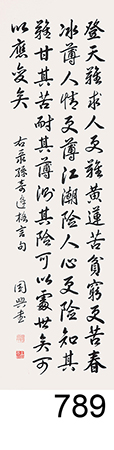 登天難求人更難黃蓮苦貧窮更苦春
冰薄人情更薄江湖險人心更險知其
難甘其苦耐其薄測其險可以處世矣可
以應變矣
789